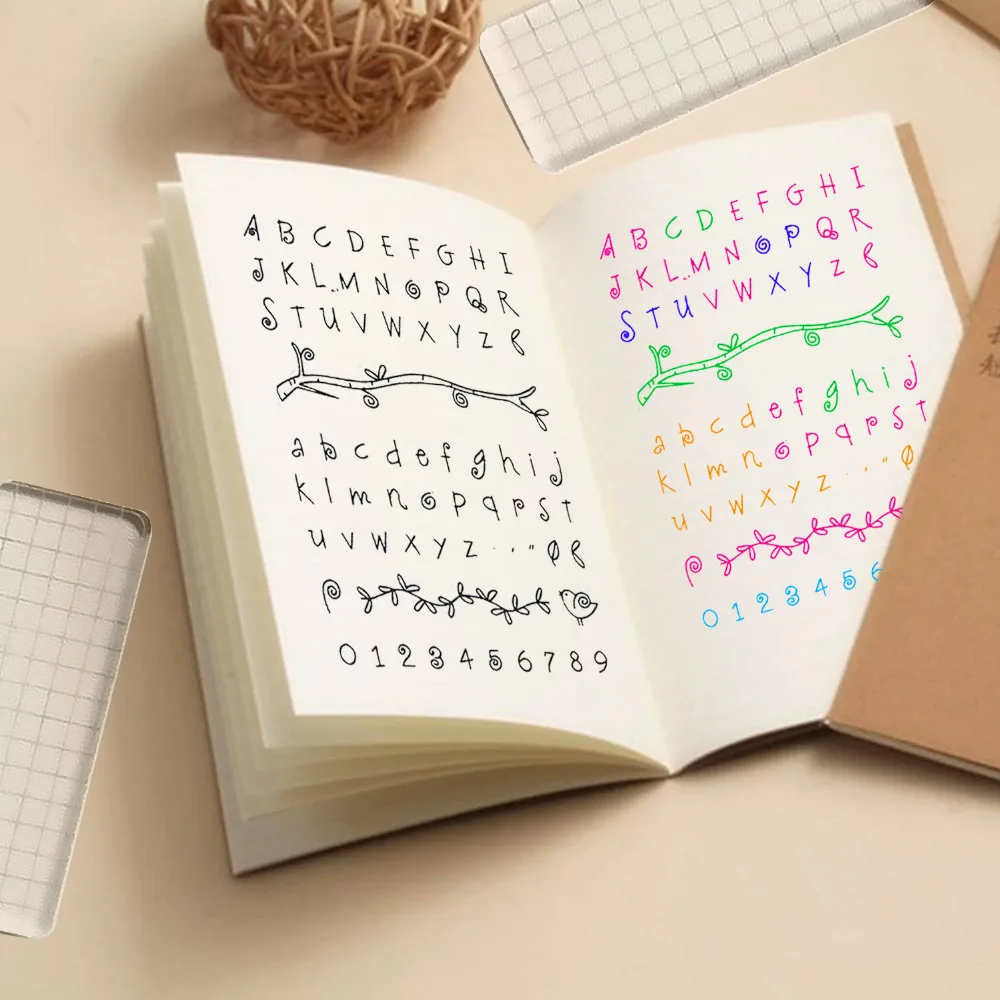 A B C D E F G H I
J K L..M N O P Q R
S T U V W X Y Z &
a b c d e f g h i j
k l m n o p q r s t
u v w x y z . . , " Ø &
0 1 2 3 4 5 6 7 8 9
A B C D E F G H I
J K L..M N O P Q R
S T U V W X Y Z &
a b c d e f g h i j
k l m n o p q r s t
u v w x y z . . , " Ø
0 1 2 3 4 5 6